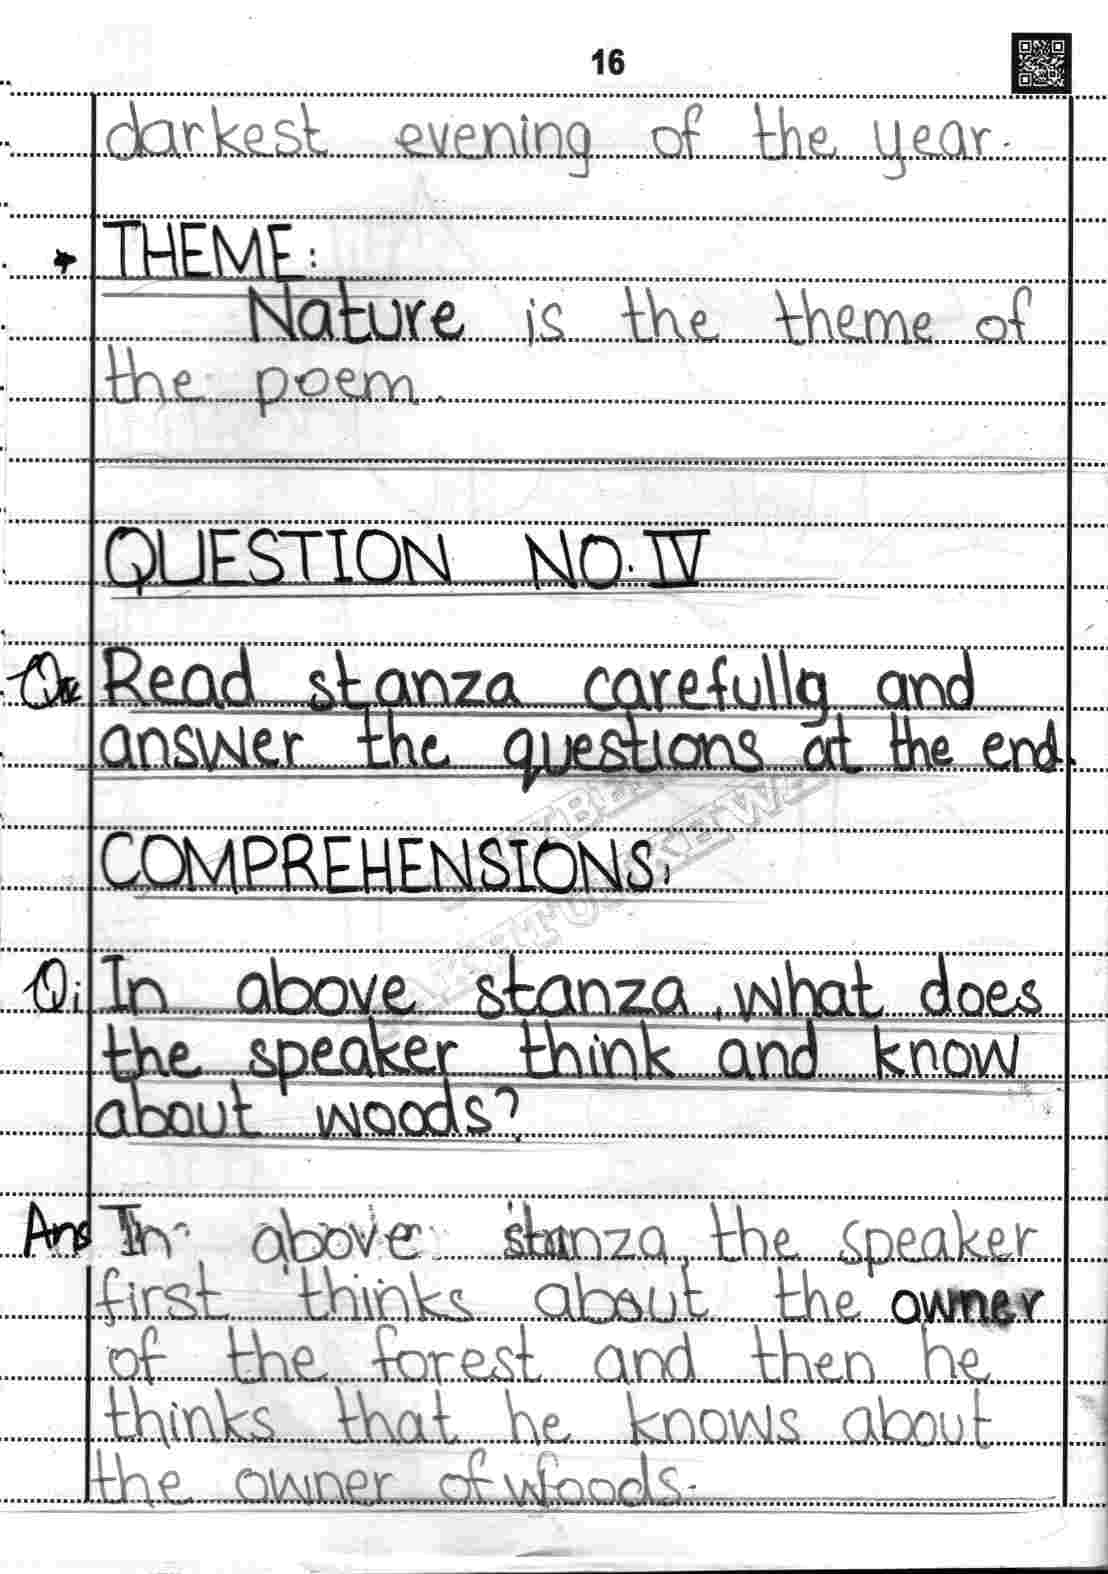 16
darkest evening of the year.
THEME:
Nature is the theme of
the poem.
QUESTION NO. IV
Read stanza carefully and
answer the questions at the end.
KHYBER
PAKHTUNKHWA
COMPREHENSIONS:
Qi In above stanza, what does
the speaker think and know
about woods?
Ans In above stanza, the speaker
first thinks about the owner
of the forest and then he
thinks that he knows about
the owner of woods.